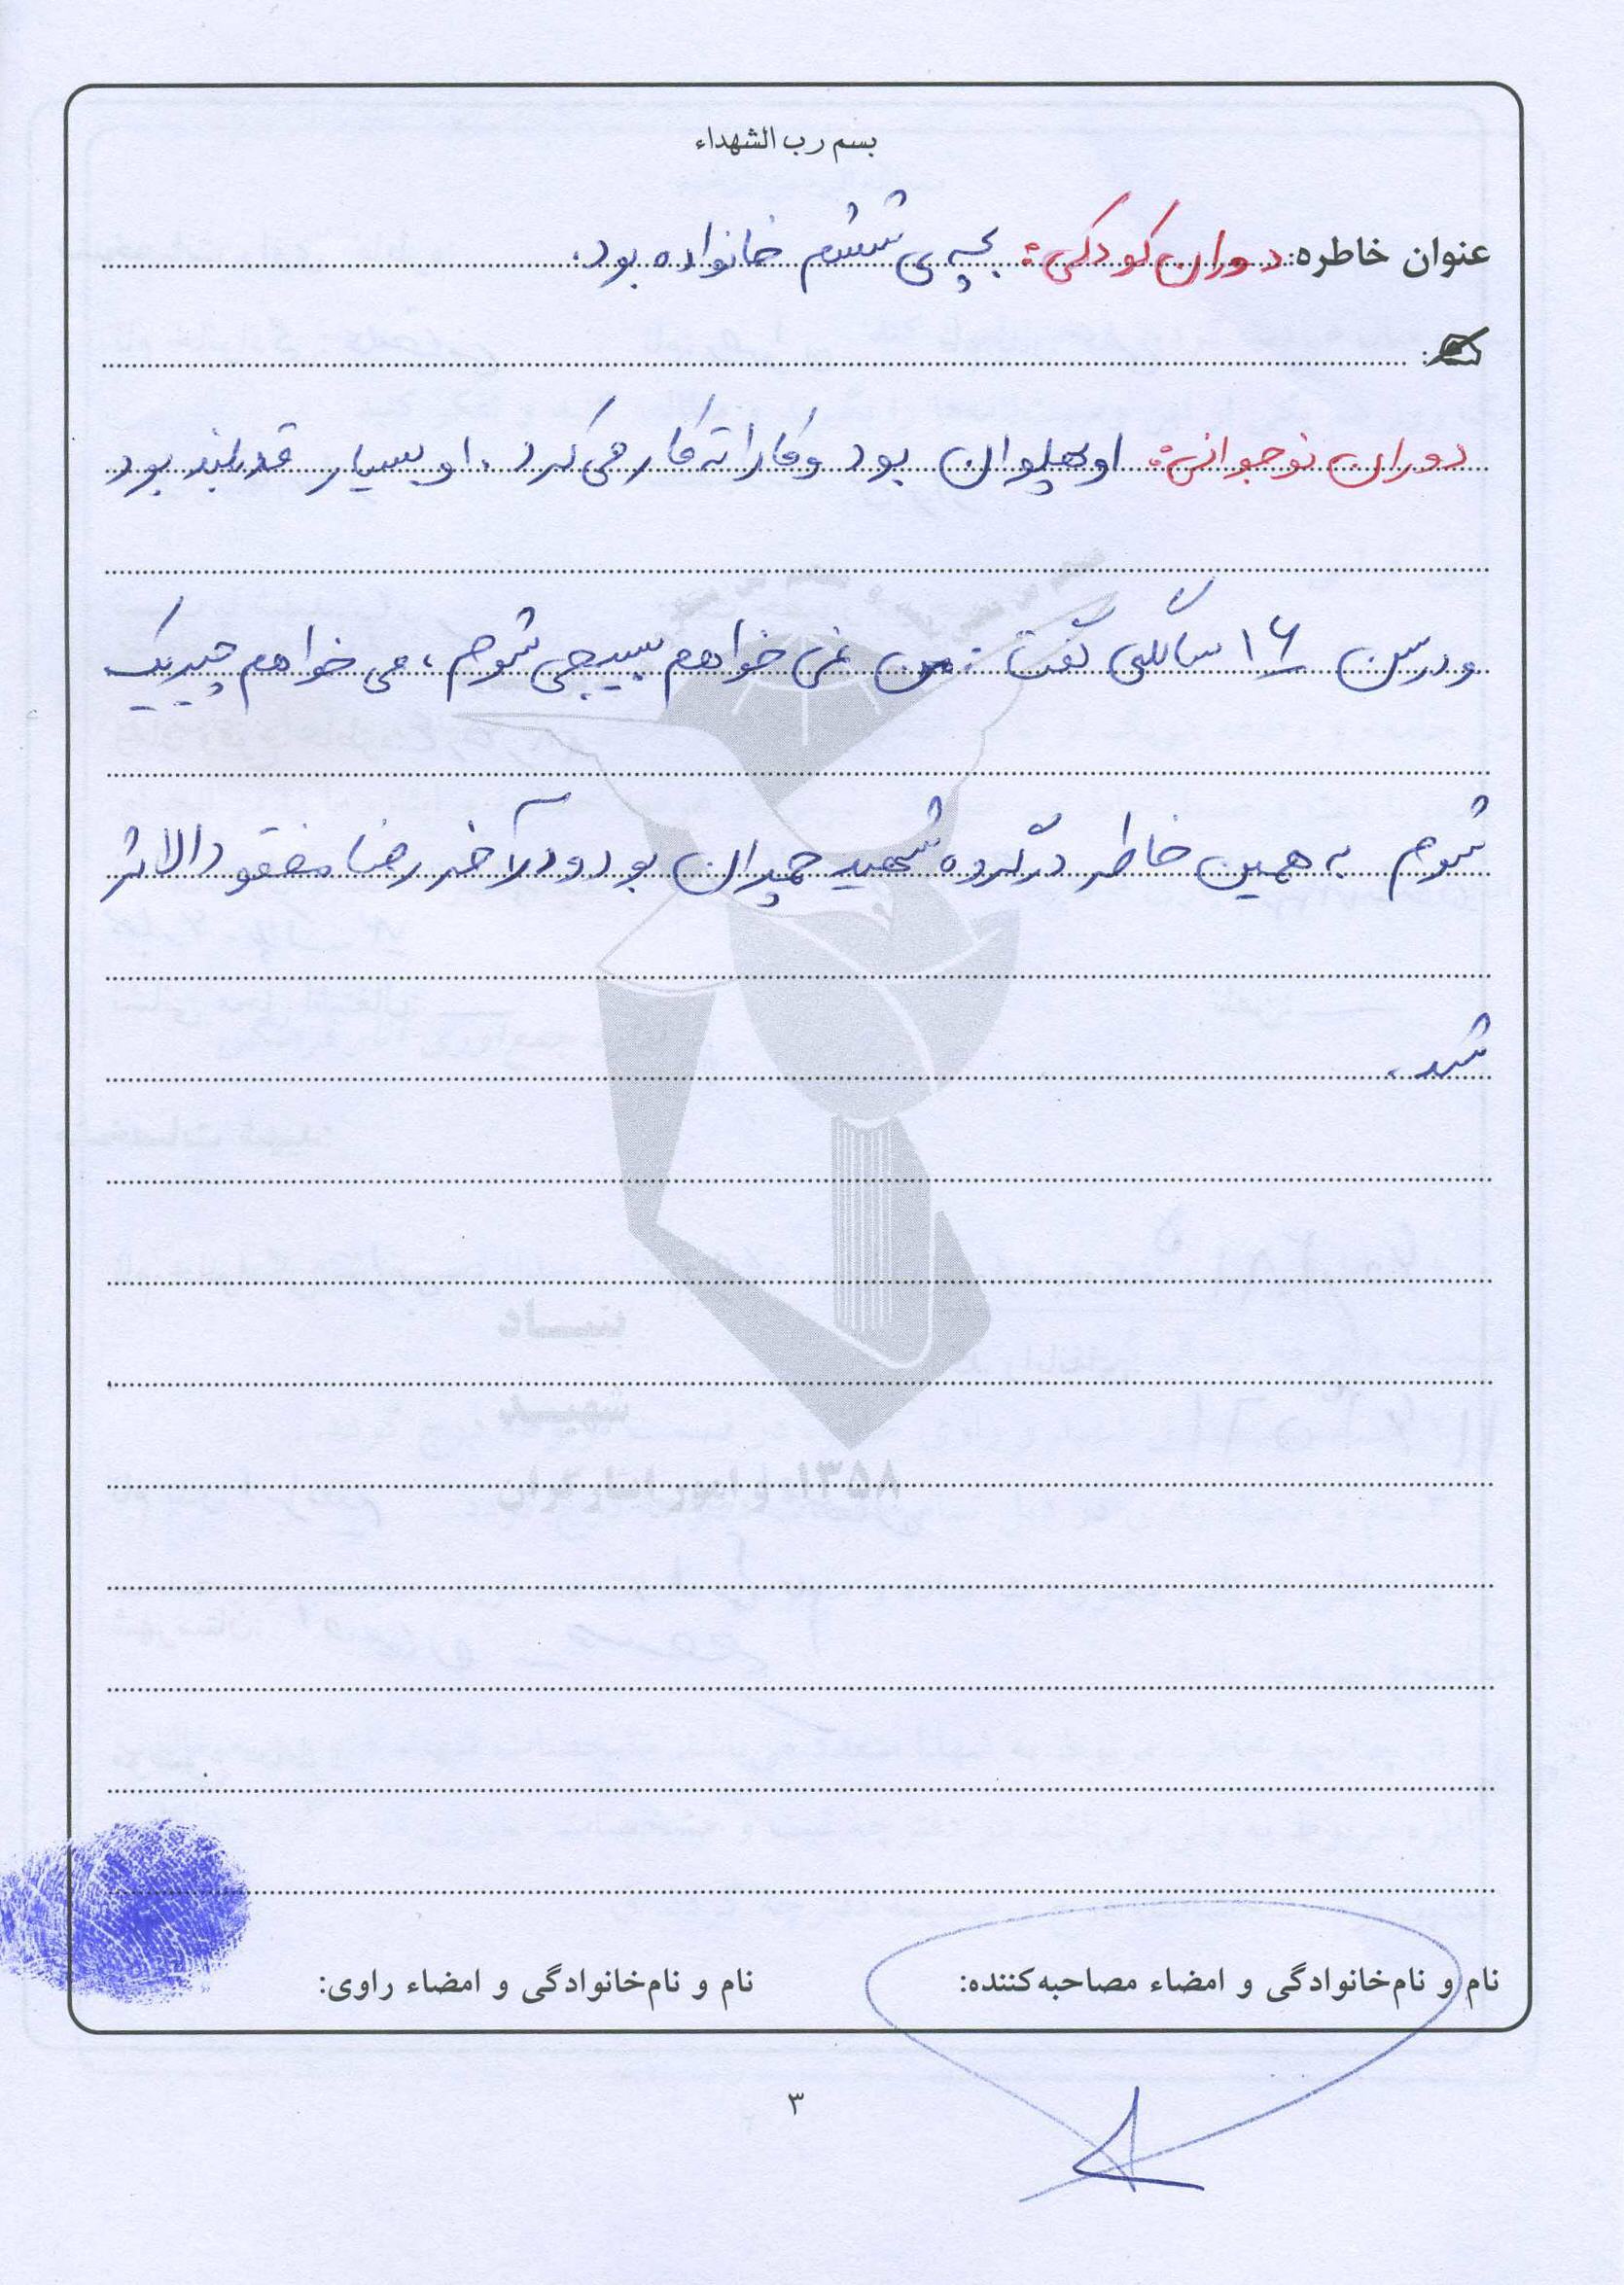 بسم رب الشهداء
عنوان خاطره: دوران کودکی: بچه ی ششم خانواده بود.
دوران نوجوانی: او پهلوان بود و کاراته کار می کرد. او بسیار قدبلند بود
و در سن ۱۶ سالگی گفت: من نمی خواهم بسیجی شوم، می خواهم چیریک
شوم به همین خاطر در گروه شهید چمران بود و در آخر رضا مفقود الاثر
شد.
بنیاد
شهید
و امور ایثارگران
۱۳۵۸
نام و نام‌خانوادگی و امضاء مصاحبه‌کننده:
نام و نام‌خانوادگی و امضاء راوی:
۳